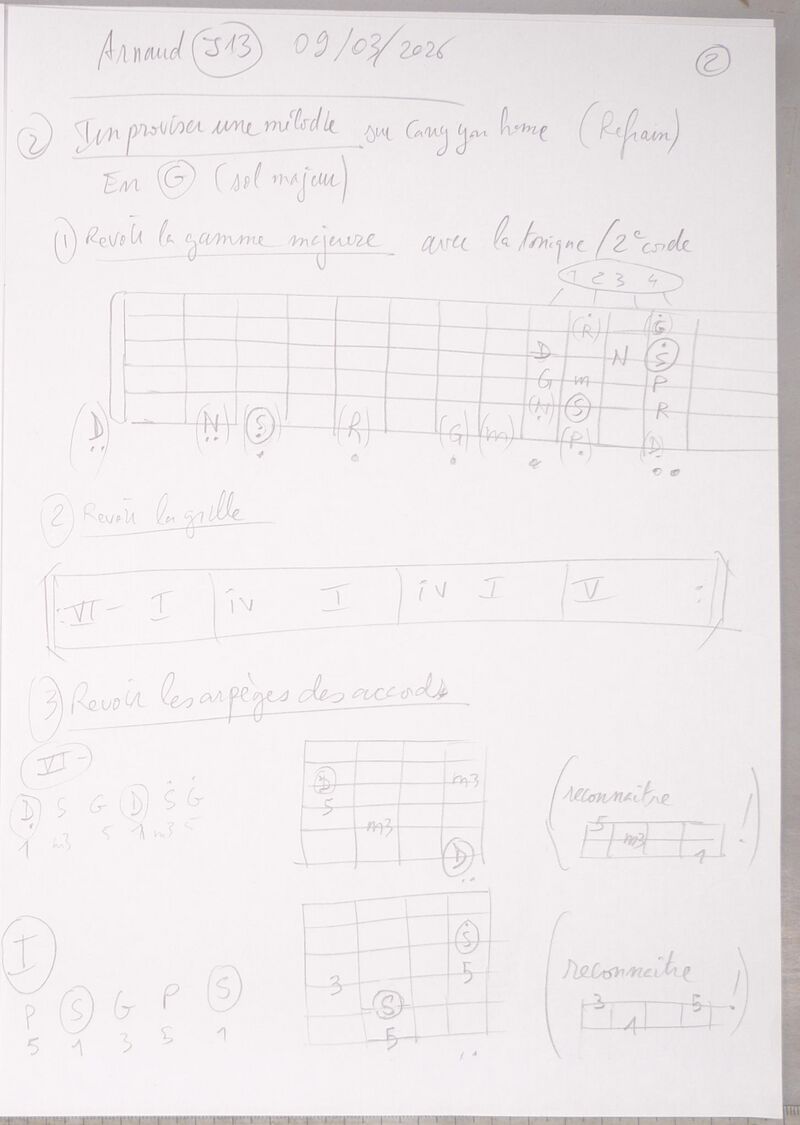 Arnaud S13 09/03/2026
2
2 Improviser une mélodie sur Carry you home (Refrain)
En G (sol majeur)
1 Revoir la gamme majeure avec la tonique/2e corde
1 2 3 4
(R) (G)
D N S
G m P
(N) S R
(D) (N) (S) (R) (G) (m) (P) (D)
2 Revoir la grille
: VI- I | iv I | iv I | V :
3 Revoir les arpèges des accords
VI-
D S G D S G
1 m3 5 1 m3 5
D m3
5
m3
D
(reconnaître !)
5
m3
1
I
P S G P S
5 1 3 5 1
S
3 5
S
5
(reconnaître !)
3 5
1